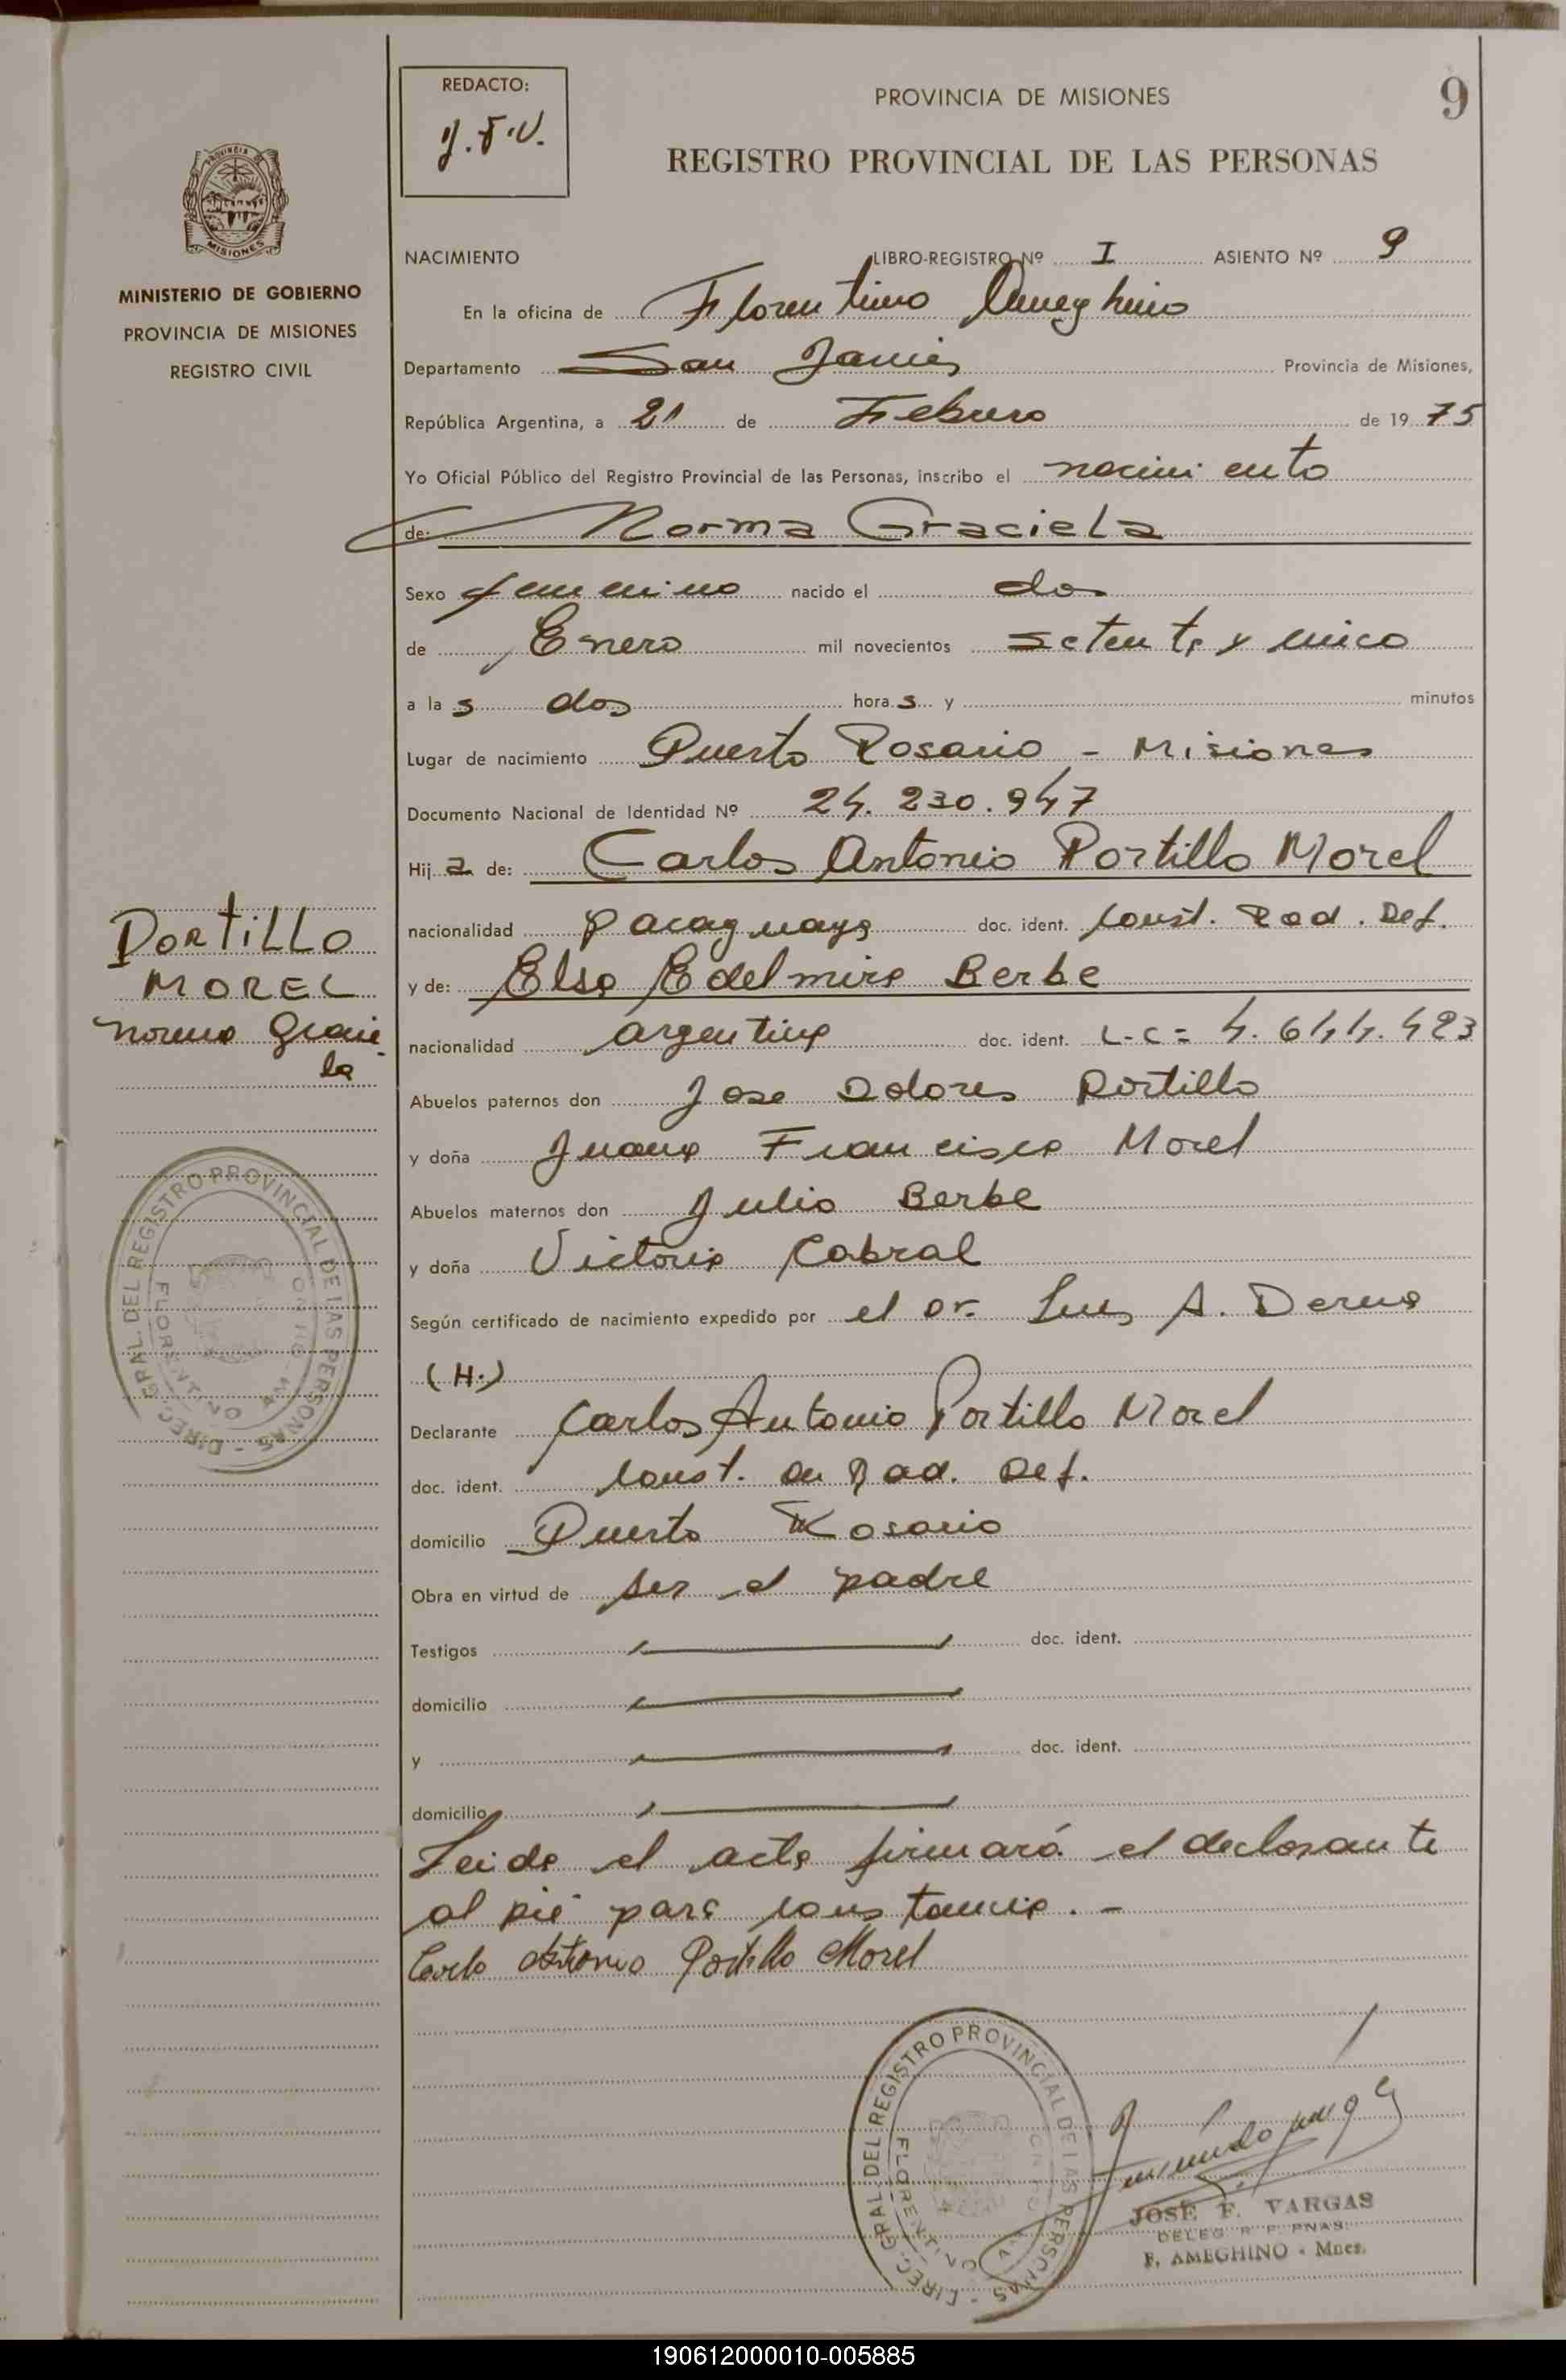 REDACTO:
J.F.V.
PROVINCIA DE MISIONES
9
REGISTRO PROVINCIAL DE LAS PERSONAS
PROVINCIA DE
MISIONES
MINISTERIO DE GOBIERNO
PROVINCIA DE MISIONES
REGISTRO CIVIL
NACIMIENTO LIBRO-REGISTRO Nº I ASIENTO Nº 9
En la oficina de Florentino Ameghino
Departamento San Javier Provincia de Misiones,
República Argentina, a 21 de Febrero de 19 75
Yo Oficial Público del Registro Provincial de las Personas, inscribo el nacimiento
de: Norma Graciela
Sexo femenino nacido el dos
de Enero mil novecientos setenta y cinco
a la s dos hora s y minutos
Lugar de nacimiento Puerto Rosario - Misiones
Documento Nacional de Identidad Nº 24.230.947
Hij a de: Carlos Antonio Portillo Morel
nacionalidad paraguaya doc. ident. Const. Rad. Def.
y de: Elsa Edelmira Berbe
nacionalidad argentina doc. ident. L-C= 4.644.423
Abuelos paternos don Jose Dolores Portillo
y doña Juana Francisca Morel
Abuelos maternos don Julio Berbe
y doña Victoria Cabral
Según certificado de nacimiento expedido por el Dr. Luis A. Derna
(H.)
Declarante Carlos Antonio Portillo Morel
doc. ident. Const. de Rad. Def.
domicilio Puerto Rosario
Obra en virtud de ser el padre
Testigos doc. ident.
domicilio
y doc. ident.
domicilio
Leida el acta firmará el declarante
al pié para constancia. -
Carlo Antonio Portillo Morel
PORTILLO
MOREL
Norma Gracie-
la
DIREC. GRAL. DEL REGISTRO PROVINCIAL DE LAS PERSONAS
FLORENTINO AMEGHINO
DIREC. GRAL. DEL REGISTRO PROVINCIAL DE LAS PERSONAS
FLORENTINO
JOSE F. VARGAS
DELEG R P PNAS.
F. AMEGHINO - Mnes.
190612000010-005885